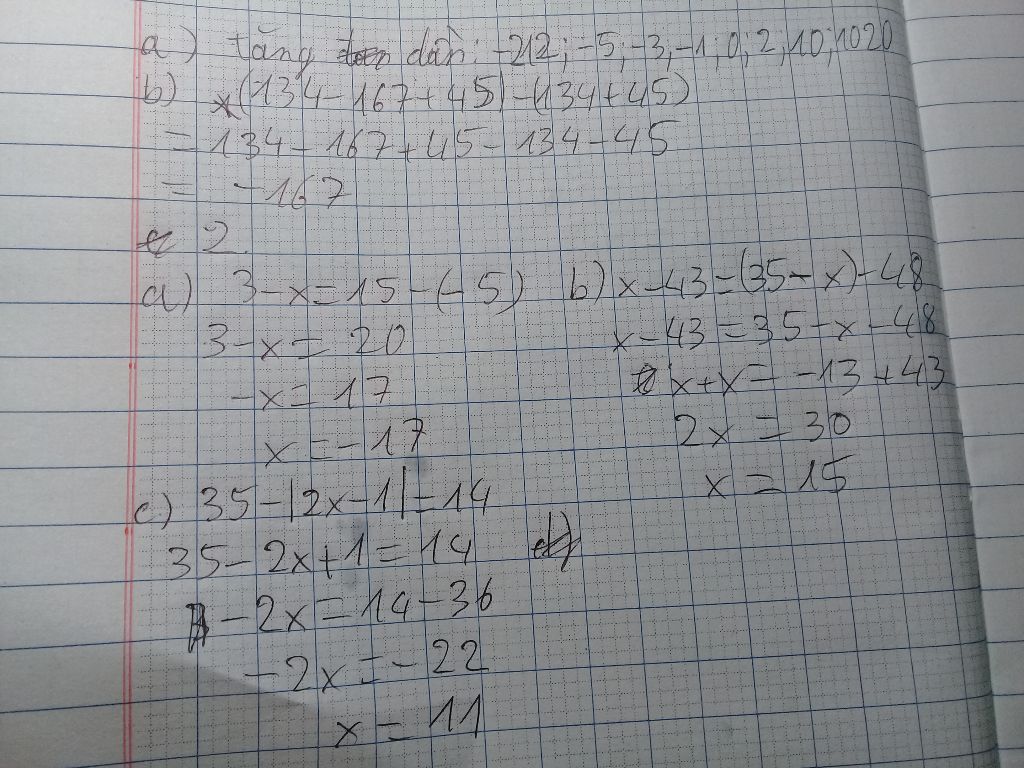 a) tăng dần: -212; -5; -3; -1; 0; 2; 10; 1020
b) (134-167+45)-(134+45)
= 134-167+45-134-45
= -167
2.
a) 3-x=15-(-5)
3-x= 20
-x= 17
x=-17
b) x-43=(35-x)-48
x-43=35-x-48
x+x= -13+43
2x = 30
x = 15
c) 35-|2x-1|=14
35-2x+1=14
-2x=14-36
-2x=-22
x= 11